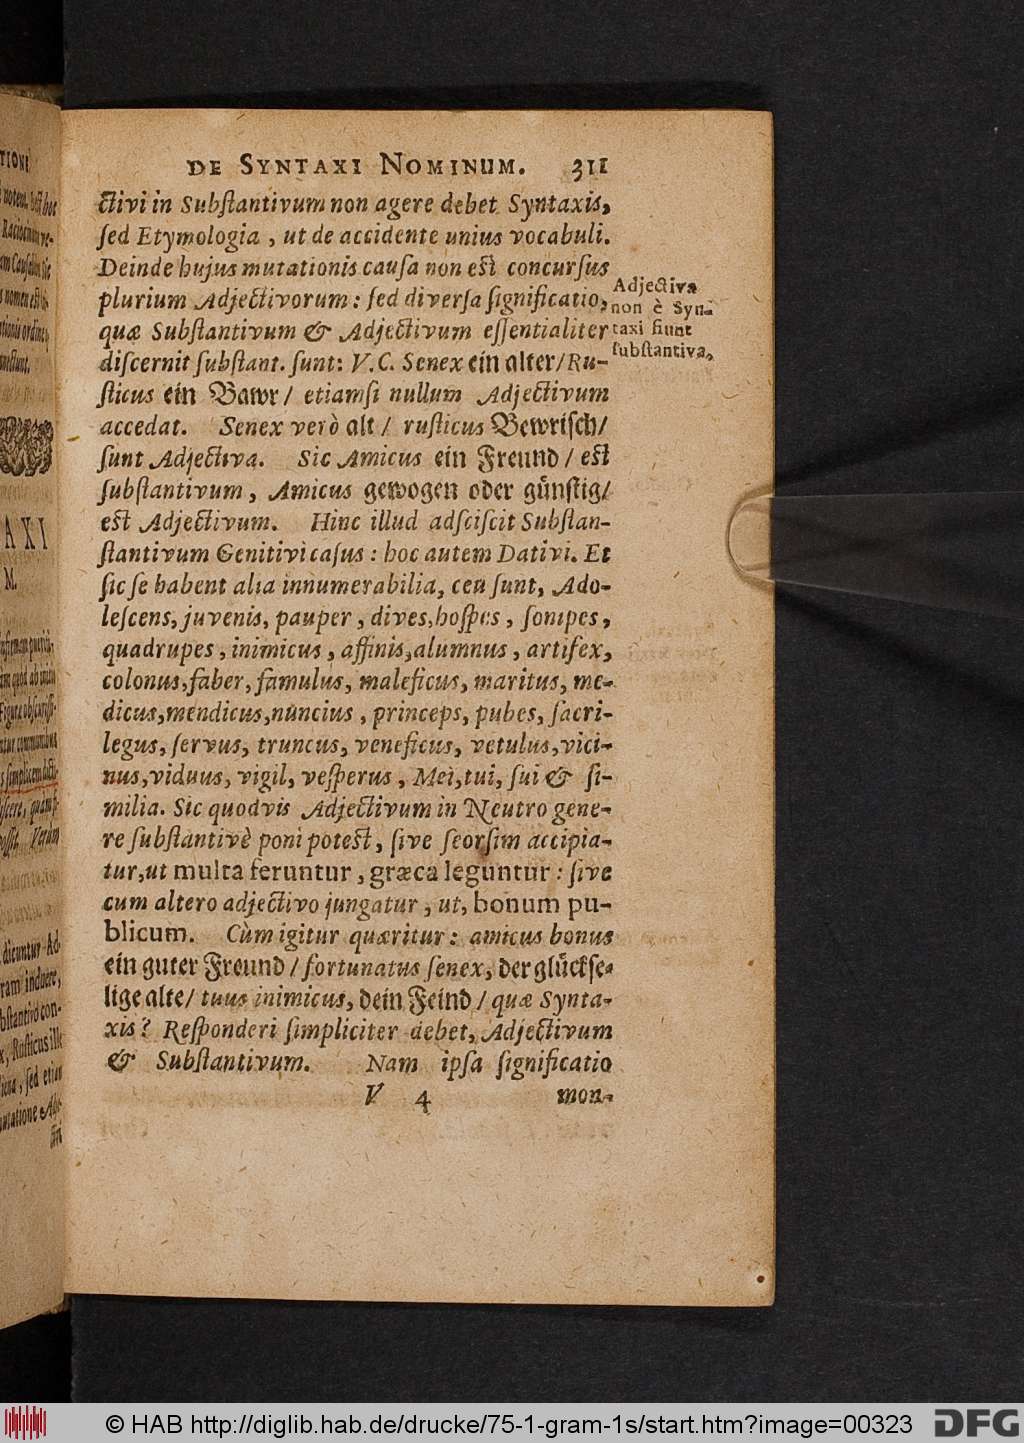 DE SYNTAXI NOMINUM. 311
ctivi in Substantivum non agere debet Syntaxis,
sed Etymologia, ut de accidente unius vocabuli.
Deinde hujus mutationis causa non est concursus
plurium Adjectivorum: sed diversa significatio,
quæ Substantivum & Adjectivum essentialiter
discernit substant. sunt: V.C. Senex ein alter/Ru-
sticus ein Bawr/ etiamsi nullum Adjectivum
accedat. Senex verò alt/ rusticus Bewrisch/
sunt Adjectiva. Sic Amicus ein Freund/ est
substantivum, Amicus gewogen oder günstig/
est Adjectivum. Hinc illud adsciscit Substan-
stantivum Genitivi casus: hoc autem Dativi. Et
sic se habent alia innumerabilia, ceu sunt, Ado-
lescens, juvenis, pauper, dives, hospes, sonipes,
quadrupes, inimicus, affinis, alumnus, artifex,
colonus, faber, famulus, maleficus, maritus, me-
dicus, mendicus, nuncius, princeps, pubes, sacri-
legus, servus, truncus, veneficus, vetulus, vici-
nus, viduus, vigil, vesperus, Mei, tui, sui & si-
milia. Sic quodvis Adjectivum in Neutro gene-
re substantivè poni potest, sive seorsim accipia-
tur, ut multa feruntur, græca leguntur: sive
cum altero adjectivo jungatur, ut, bonum pu-
blicum. Cùm igitur quæritur: amicus bonus
ein guter Freund/ fortunatus senex, der glückse-
lige alte/ tuus inimicus, dein Feind/ quæ Synta-
xis? Responderi simpliciter debet, Adjectivum
& Substantivum. Nam ipsa significatio
V 4 mon-
Adjectiva
non è Syn-
taxi fiunt
substantiva.
TIONE
AXI
M.
© HAB http://diglib.hab.de/drucke/75-1-gram-1s/start.htm?image=00323
DFG